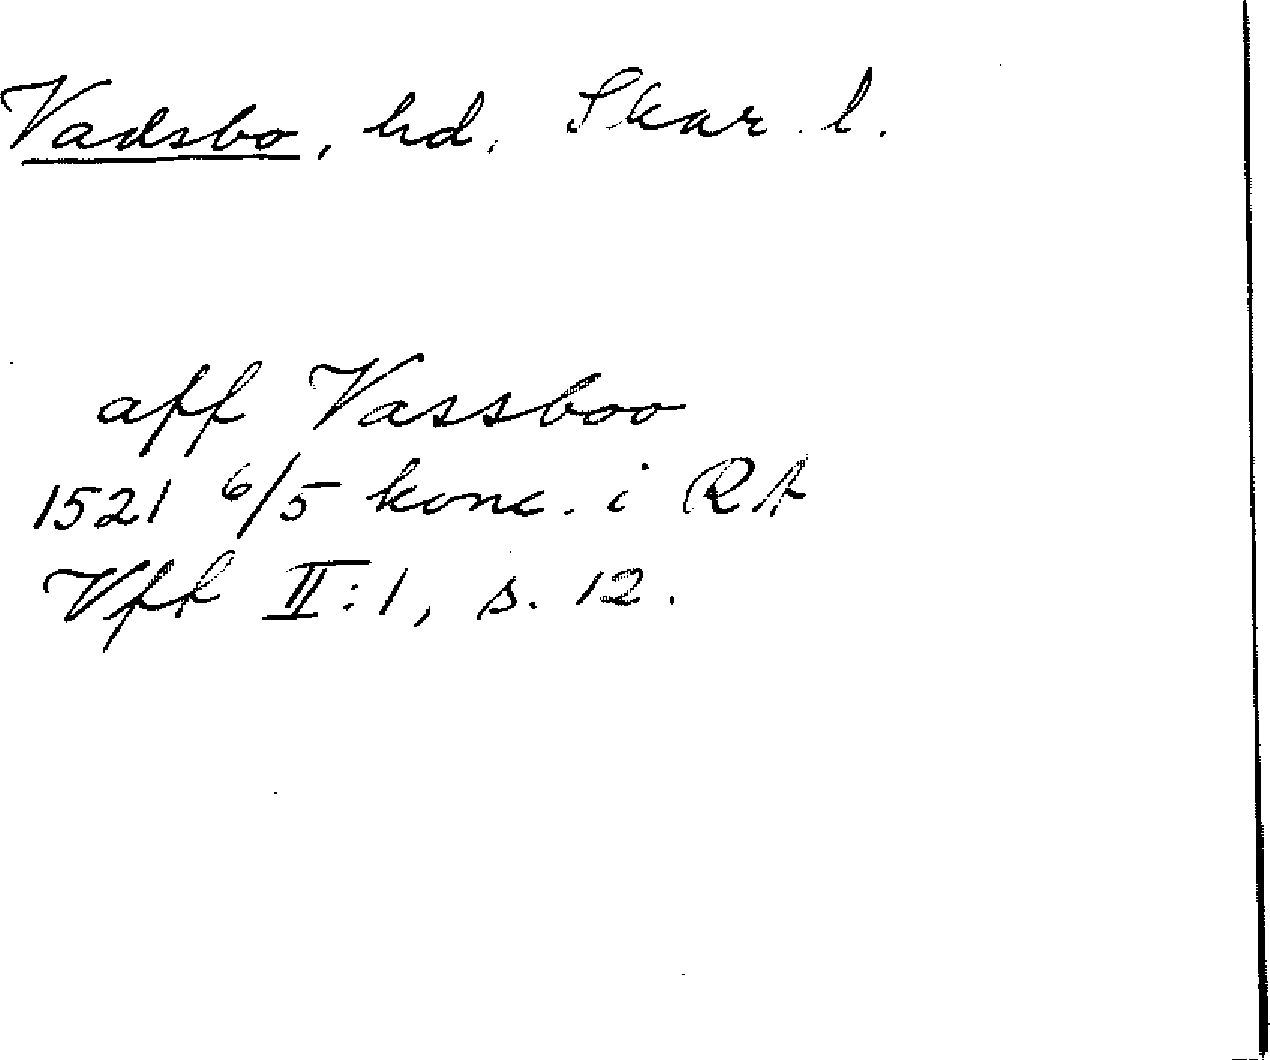 Vadsbo, hd, Skar. l.
aff Vassboo
1521 6/5 konc. i RA
Vff II:1, s. 12.